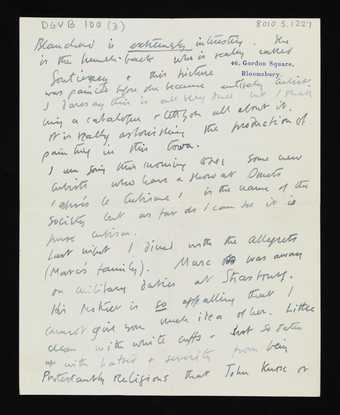 DGVB 100 (3)
8010.5.1227
46, Gordon Square,
Bloomsbury.
Blanchard is extremely interesting. He
is the hunch-back who is really called
& this picture
was painted before she became entirely cubist.
I daresay this is all very but I shall
bring a catalogue & tell you all about it.
It is really astonishing the production of
painting in this town.
I am going this morning to see some new
cubists who have a show at Druets
'après le Cubisme' is the name of the
society but as far as I can see it is
pure cubism.
Last night I dined with the Allegrets
(Marc's family). Marc was away
on military duties at Strasbourg.
His Mother is so appalling that I
cannot give you much idea of her. Little
clean with white cuffs & but so eaten
up with hatred & severity from being
Protestantly Religious that John Knox or